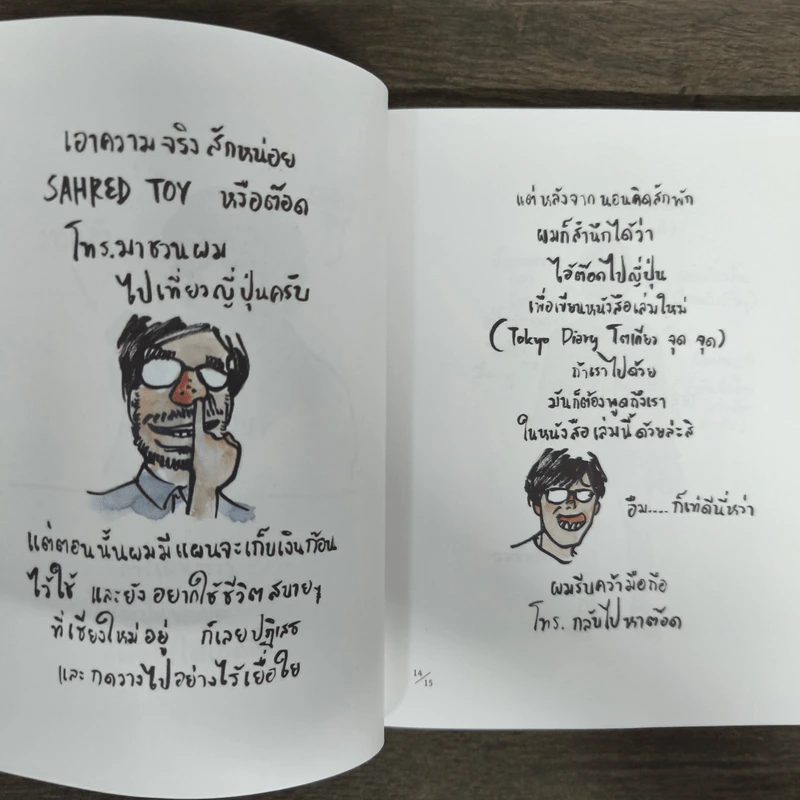 เอาความจริงสักหน่อย
SAHRED TOY หรือต๊อด
โทร.มาชวนผม
ไปเที่ยวญี่ปุ่นครับ
แต่ตอนนั้นผมมีแผนจะเก็บเงินก้อน
ไว้ใช้ และยังอยากใช้ชีวิตสบายๆ
ที่เชียงใหม่อยู่ ก็เลยปฏิเสธ
และกดวางไปอย่างไร้เยื่อใย
แต่หลังจากนอนคิดสักพัก
ผมก็สำนึกได้ว่า
ไอ้ต๊อดไปญี่ปุ่น
เพื่อเขียนหนังสือเล่มใหม่
(Tokyo Diary โตเกียว จุด จุด)
ถ้าเราไปด้วย
มันก็ต้องพูดถึงเรา
ในหนังสือเล่มนี้ด้วยล่ะสิ
อืม.... ก็เท่ดีนี่หว่า
ผมรีบคว้ามือถือ
โทร. กลับไปหาต๊อด
14/15